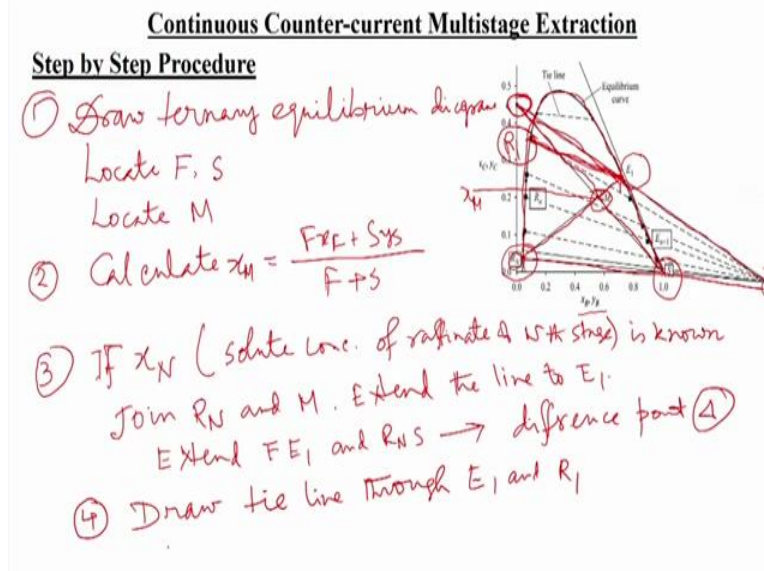 Continuous Counter-current Multistage Extraction
Step by Step Procedure
① Draw ternary equilibrium diagram
Locate F, S
Locate M
② Calculate x_M = (F x_F + S y_S) / (F + S)
③ If x_N (solute conc. of raffinate of Nth stage) is known
Join R_N and M. Extend the line to E_1.
Extend F E_1 and R_N S → difrence point Δ
④ Draw tie line through E_1 and R_1
Tie line
Equilibrium
curve
0.5
0.2
0.1
0.0 0.2 0.4 0.6 0.8 1.0
x_M
R_1
E_1